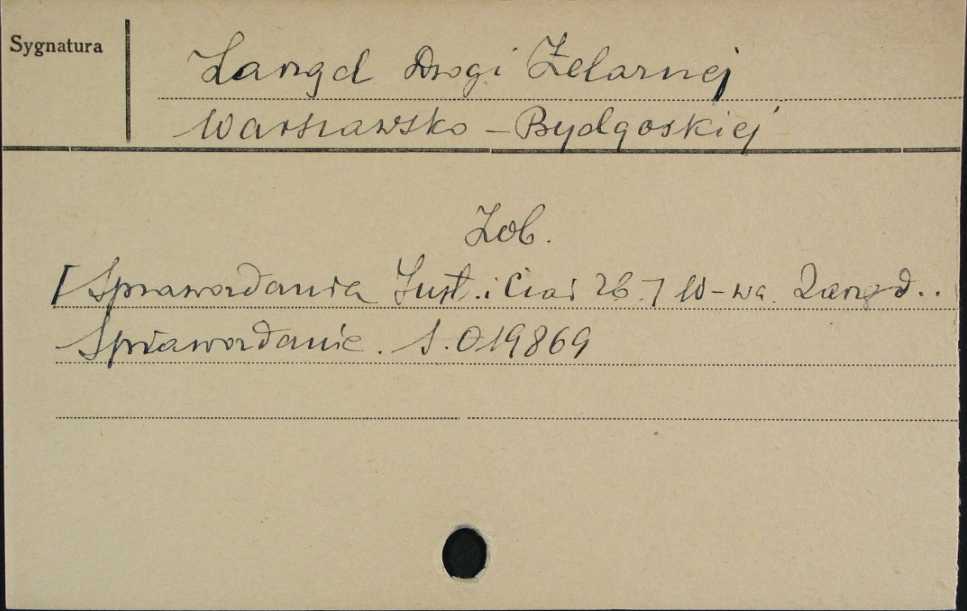 Sygnatura
Zarząd Drogi Żelaznej
Warszawsko - Bydgoskiej
Zob.
[Sprawozdania Inst. i Ciał zb.] W-wa. Zarząd..
Sprawozdanie. S. 019869